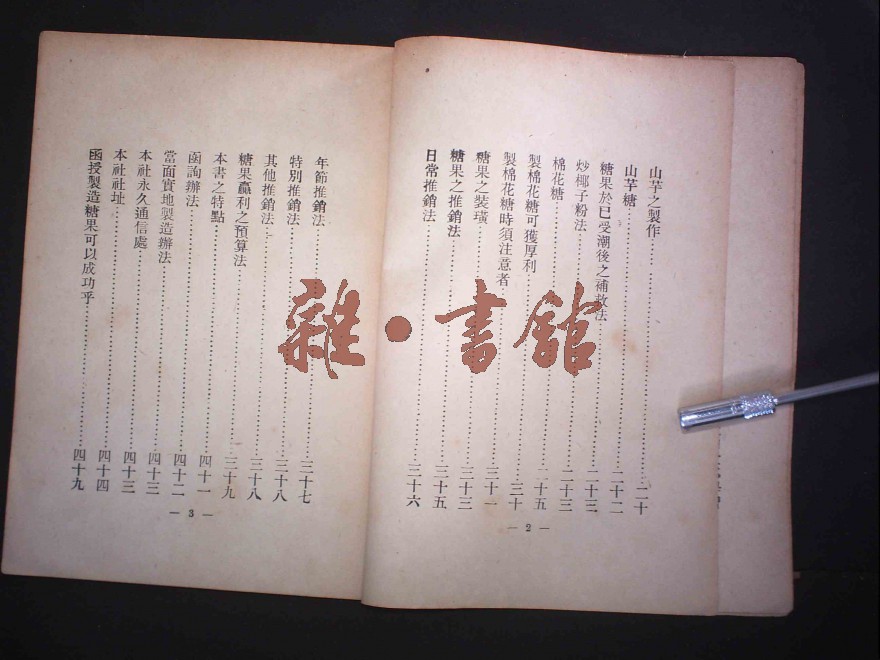 山芋之製作……二十
山芋糖……二十二
糖果於已受潮後之補救法……二十三
炒椰子粉法……二十三
棉花糖……二十三
製棉花糖可獲厚利……二十五
製棉花糖時須注意者……三十
糖果之裝璜……三十一
糖果之推銷法……三十三
日常推銷法……三十六
— 2 —
年節推銷法……三十七
特別推銷法……三十八
其他推銷法……三十八
糖果贏利之預算法……三十八
本書之特點……三十九
函詢辦法……四十一
當面實地製造辦法……四十二
本社永久通信處……四十三
本社社址……四十三
函授製造糖果可以成功乎……四十九
— 3 —
雜·書館